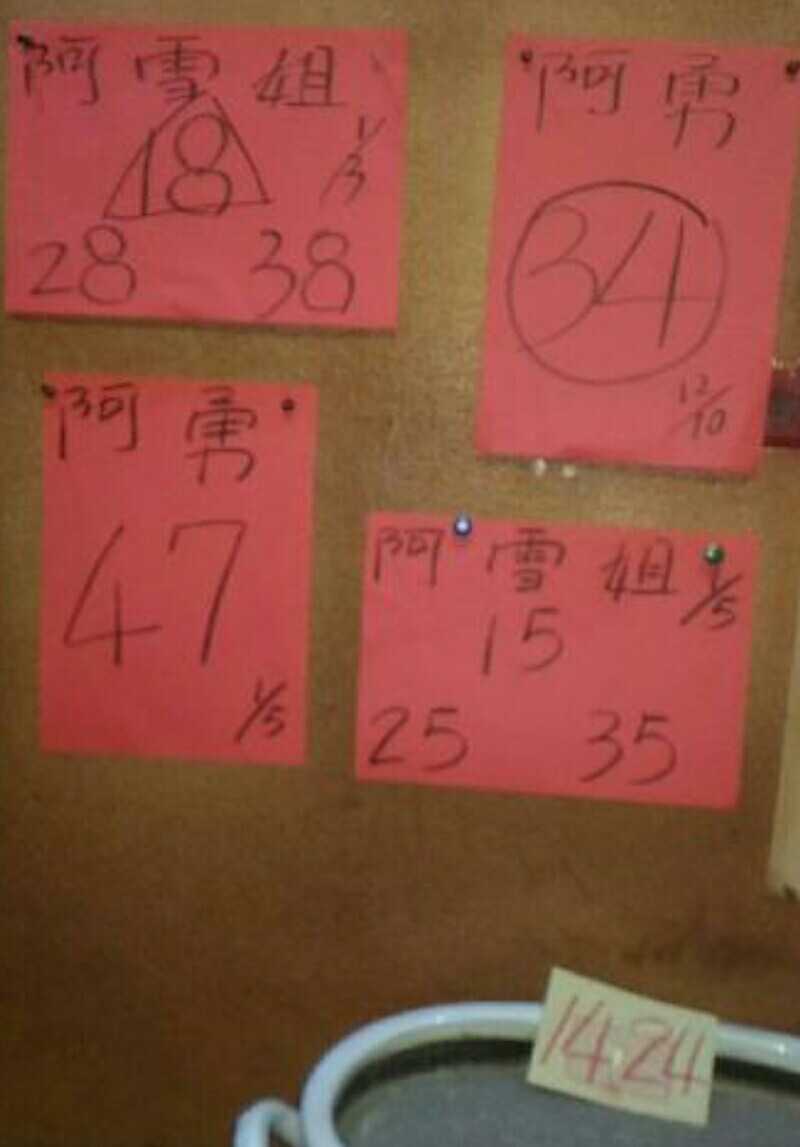 阿雪姐
18 1/3
28 38
阿勇
34
12/10
阿勇
47
1/5
阿雪姐 1/5
15
25 35
14.24